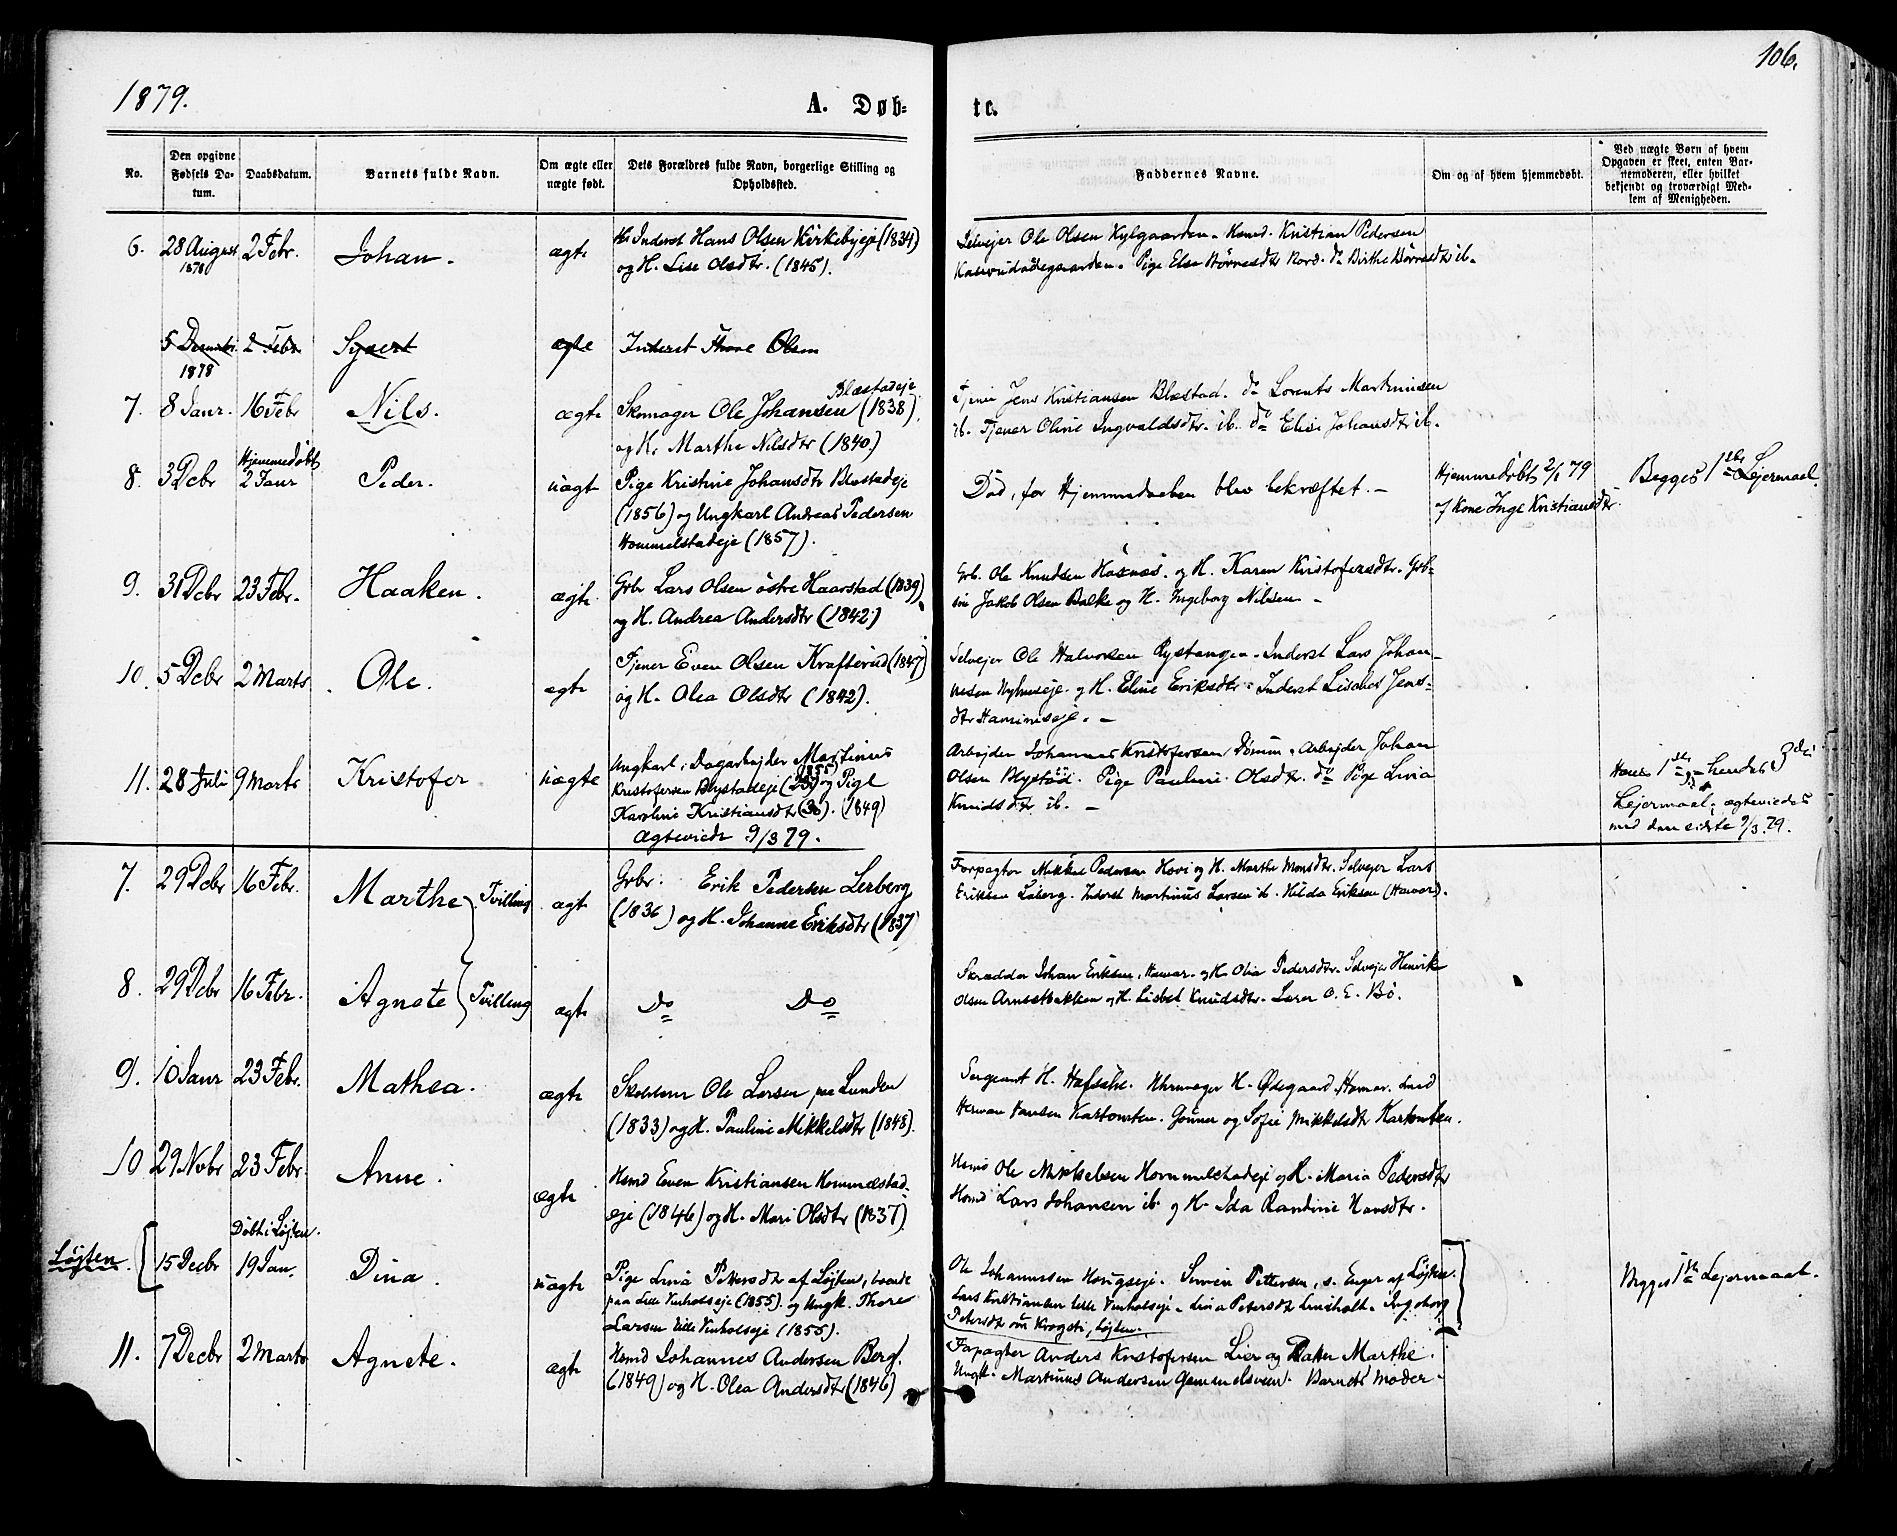 106.
1879.
A. Døb-
te.
No.
Den opgivne Fødsels Da-tum.
Daabsdatum.
Barnets fulde Navn.
Om ægte eller uægte født.
Dets Forældres fulde Navn, borgerlige Stilling og Opholdssted.
Faddernes Navne.
Om og af hvem hjemmedøbt.
Ved uægte Børn af hvem Opgaven er skeet, enten Bar-nemoderen, eller hvilket bekjendt og troværdigt Med-lem af Menigheden.
6. 28 August 1878 2 Febr. Johan. ægte
Inderst Hans Olsen Kirkebyeje (1834)
og H. Lise Olsdtr. (1845).
Selvejer Ole Olsen Kylgaarden. Kristian Pedersen
Pige Else Nord. do Birthe ib.
5 Decembr. 1878 2 Febr. Syvert ægte Inderst Olsen
7. 8 Janr. 16 Febr Nils. ægte
Blæstadeje
Skomager Ole Johansen (1838)
og H. Marthe Nilsdtr (1840.)
Tjener Jens Kristiansen Blæstad. do Lorents Martinusen
ib. Tjener Oline Ingvaldsdtr. ib. do Elise Johansdtr ib.
8. 3 Dcbr Hjemmedøbt 2 Janr Peder. uægte
Pige Kristine Johansdtr Blæstadeje
(1856) og Ungkarl Andreas Pedersen
Hommelstadeje (1857).
Død, før Hjemmedaaben blev bekræftet. -
Hjemmedøbt 2/1 79
af Kone Inge Kristiansdtr.
Begges 1ste Lejermaal.
9. 31 Dcbr 23 Febr. Haaken. ægte
Grb Lars Olsen østre Haarstad (1839)
og H. Andrea Andersdtr (1842)
Grb. Ole Knudsen Hosnæs. og H. Karen Kristofersdtr. Grb-
Jakob Olsen Balke og H. Ingeborg Nilsen -
10. 5 Dcbr 2 Marts Ole. ægte
Tjener Even Olsen Krafterud (1847)
og H. Olea Olsdtr (1842).
Selvejer Ole Halvorsen Rystangen. Inderst Lars Johan-
nesen Nyhuseje. og H. Eline Eriksdtr. Inderst Jens-
dtr -
11. 28 Juli 9 Marts Kristofer uægte
Ungkarl, Dagarbejder Martinus
Kristofersen Blystadeje (1855) og Pige
Karoline Kristiansdtr (30). (1849)
Ægteviede 9/3 79.
Arbejder Johannes Kristofersen Dømm. Arbejder Johan
Olsen Blystad. Pige Pauline Olsdtr. do Pige Lina
Knudsdtr ib. -
Hans 1ste og hendes 3die
Lejermaal; ægteviedes
med den sidste 9/3.79.
7. 29 Dcbr 16 Febr. Marthe Tvilling ægte
Grbr. Erik Pedersen Lerberg
(1836) og H. Johanne Eriksdtr (1837)
Forpagter Mikkel Pedersen Hovi og H. Marthe Monsdtr. Selvejer Lars
Eriksen Inderst Martinus Larsen ib. Hilda Eriksen (Hamar).
8. 29 Dcbr 16 Febr. Agnete Tvilling ægte Do Do
Skrædder Johan Eriksen, Hamar. og H. Olia Pedersdtr. Selvejer Henrik
Olsen Arnsetbakken og H. Lisbet Knudsdtr. Lærer O. E. Bø.
9. 10 Janr 23 Febr. Mathea. ægte
Ole Larsen, paa Lunden
(1833) og H. Pauline Mikkelsdtr (1848).
Sergeant H. Uhrmager H. Ødegaard, Hamar.
Herman Hansen Kartomten. Gunner og Sofie Mikkelsdtr Kartomten.
10 29 Nvbr 23 Febr. Anne. ægte
Hsmd Even Kristiansen Hommelstad-
eje (1846) og H. Mari Olsdtr (1837)
Hsmd Ole Mikkelsen Hommelstadeje og H. Maria Pedersdtr
Hsmd Lars Johansen ib. og H. Ida Randine Hansdtr.
Løjten. 15 Decbr Døbt i Løjten. 19 Jan. Dina. uægte
Pige Lina Petersdtr af Løjten, boende
paa Lille Vinholseje (1855). og Ungk. Thore
Larsen Lille Vinholseje (1855).
Ole Johannesen Haugseje. Pettersen, s. Enger af Løjten.
Lars Kristiansen lille Vinholseje. Lina Petersdtr Ingeborg
Petersdtr Krogsti, Løjten.
Begges 1ste Lejermaal.
11. 7 Decbr 2 Marts Agnete. ægte
Hsmd Johannes Andersen Berg.
(1849) og H. Olea Andersdtr (1846)
Forpagter Anders Kristofersen Lier og Datter Marthe.
Ungk. Martinus Andersen Barnets Moder.